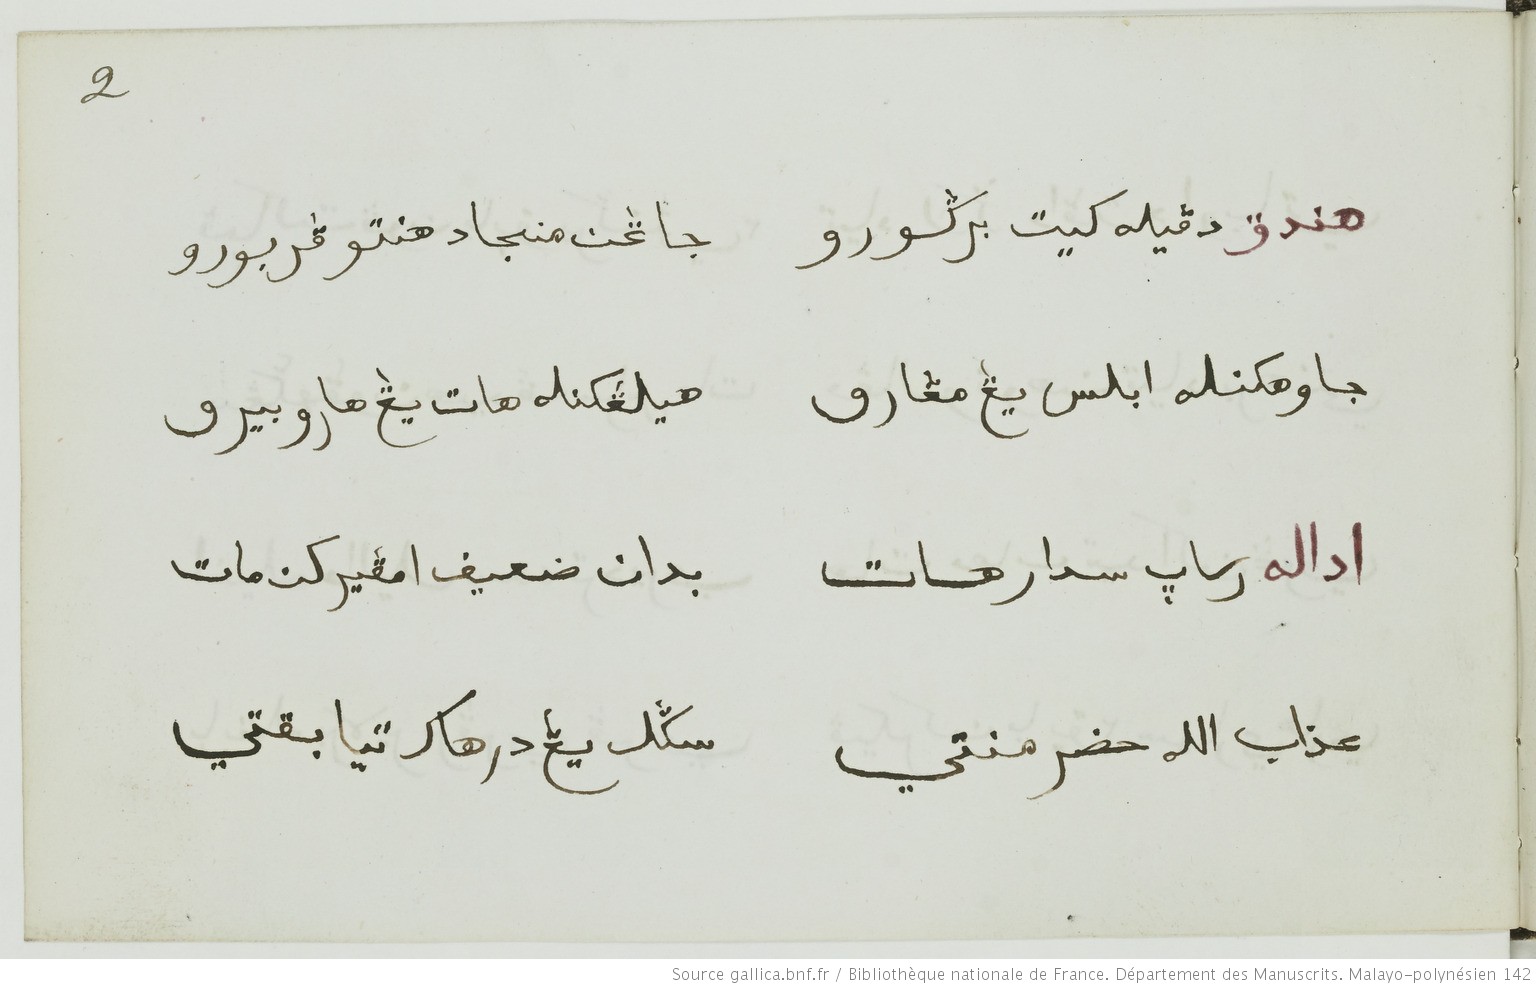 2
هندق دڤيله كيت برڬورو جاڠن منجاد هنتو ڤربورو
جاوهكنله ابلس يڠ مڠارو هيلڠكنله هات يڠ هارو بيرو
اداله رساپ سدار هات بدان ضعيف امڤير كن مات
عذاب الله حضر منتي سڬل يڠ درهاك تيا بقتي
Source gallica.bnf.fr / Bibliothèque nationale de France. Département des Manuscrits. Malayo-polynésien 142